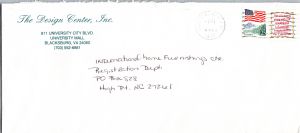 The Design Center, Inc.
611 UNIVERSITY CITY BLVD.
UNIVERSITY MALL
BLACKSBURG, VA 24060
(703) 552-6881
International Home Furnishings Ctr.
Registration Dept
PO Box 828
High Pt. NC 27261